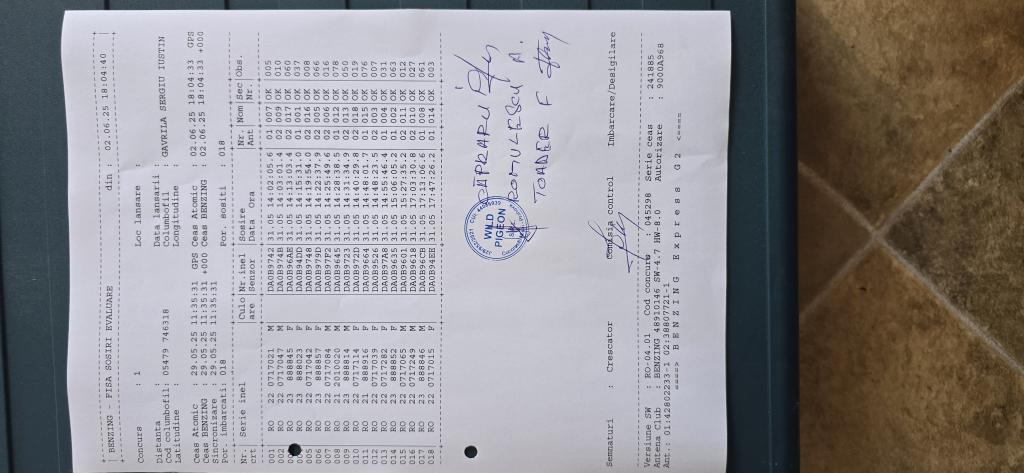 BENZING - FISA SOSIRI EVALUARE din : 02.06.25 18:04:40
Concurs : 1 Loc lansare :
Distanta : Data lansarii :
Cod.columbofil: 05479 746318 Columbofil : GAVRILA SERGIU IUSTIN
Latitudine : Longitudine :
Ceas Atomic : 29.05.25 11:35:31 GPS Ceas Atomic : 02.06.25 18:04:33 GPS
Ceas BENZING : 29.05.25 11:35:31 +000 Ceas BENZING : 02.06.25 18:04:33 +000
Sincronizare : 29.05.25 11:35:31
Por. imbarcati: 018 Por. sositi : 018
Nr. Serie inel Culo Nr.inel Sosire Nr. Nom Sec Obs.
crt are Senzor Data Ora Ant Nr.
001 RO 22 0717021 M DA0B9742 31.05 14:02:05.6 01 007 OK 005
002 RO 22 0717047 M DA0B974B 31.05 14:03:01.4 02 009 OK 010
RO 23 888845 F DA0B96AE 31.05 14:13:01.4 02 017 OK 060
RO 23 888023 F DA0B94DD 31.05 14:15:31.0 01 001 OK 037
005 RO 22 0717042 F DA0B9748 31.05 14:19:54.0 02 016 OK 008
006 RO 23 888857 F DA0B979D 31.05 14:22:37.9 02 005 OK 066
007 RO 22 0717084 M DA0B97F2 31.05 14:25:49.6 02 006 OK 016
008 RO 21 2010020 M DA0B9645 31.05 14:28:38.5 01 012 OK 078
009 RO 23 888814 M DA0B9723 31.05 14:31:34.9 02 013 OK 050
010 RO 22 0717114 F DA0B972D 31.05 14:40:29.8 02 018 OK 019
011 RO 21 888916 F DA0B9664 31.05 14:48:01.7 01 015 OK 076
012 RO 22 0717039 F DA0B9526 31.05 14:48:23.5 02 003 OK 007
013 RO 22 0717282 F DA0B97A8 31.05 14:55:46.4 01 004 OK 031
014 RO 23 888852 F DA0B9635 31.05 15:06:05.2 01 002 OK 063
015 RO 22 0717065 M DA0B9601 31.05 15:27:35.2 02 011 OK 012
016 RO 22 0717249 M DA0B9618 31.05 17:03:30.8 02 010 OK 027
017 RO 23 888846 M DA0B96CB 31.05 17:13:06.6 01 008 OK 061
018 RO 22 0717015 F DA0B94EE 31.05 17:47:26.2 01 014 OK 003
WILD
PIGEON
PĂPRARU
ROMULESCU A.
TOADER F
Semnaturi : Crescator Comisia control Imbarcare/Desigilare
Versiune SW : RO-04.01 Cod concurs : 045298 Serie ceas : 241885
Antena Club : BENZING 48910146 SW-4.7 HW-8.0 Autorizare : 9000A968
Ant.: 01:42802233-1 02:38807721-1
====> B E N Z I N G E x p r e s s G 2 <====